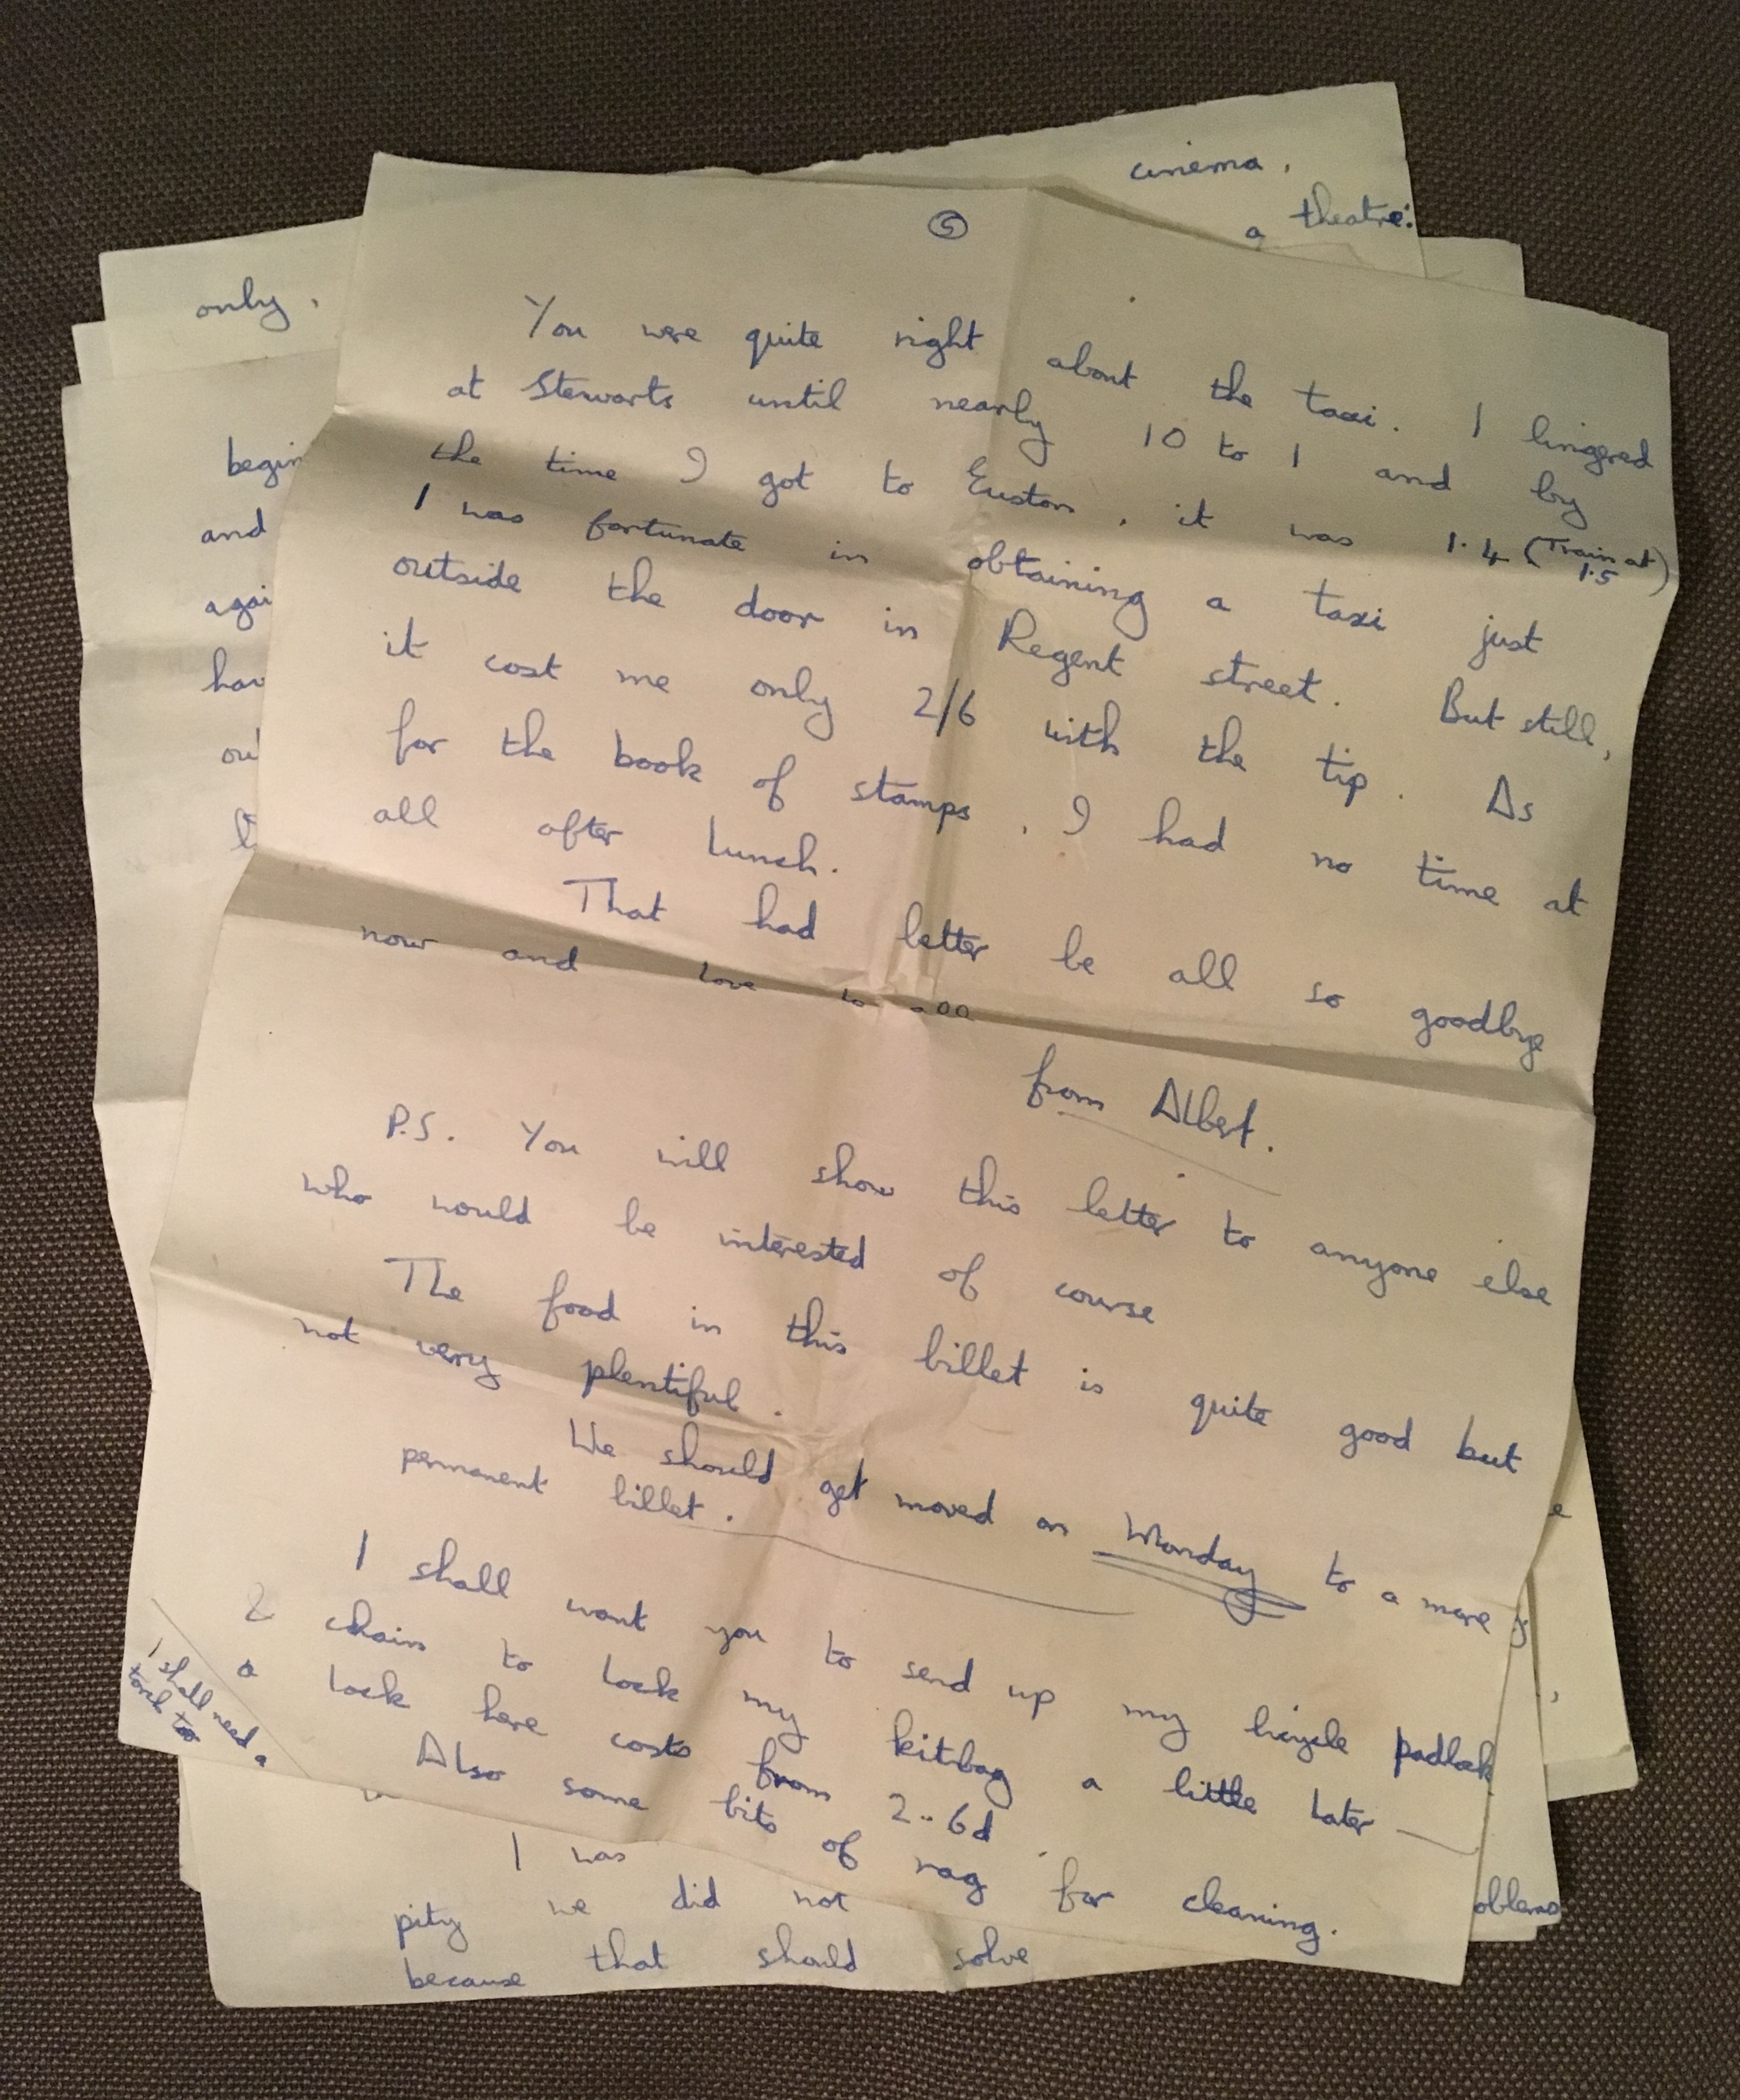 cinema.
a theatre:
only,
begin
and
agai
hav
ou
⑤
You were quite right about the taxi. I lingered
at Stewarts until nearly 10 to 1 and by
the time I got to Euston, it was 1.4 (Train at 1.5)
I was fortunate in obtaining a taxi just
outside the door in Regent street. But still,
it cost me only 2/6 with the tip. As
for the book of stamps, I had no time at
all after lunch.
That had better be all so goodbye
now and love to all
from Albert.
P.S. You will show this letter to anyone else
who would be interested of course
The food in this billet is quite good but
not very plentiful.
We should get moved on Monday to a more
permanent billet.
I shall want you to send up my bicycle padlock
& chain to lock my kitbag a little later —
a lock here costs from 2..6d.
Also some bits of rag for cleaning.
I shall need a
torch too
I was
pity we did not
because that should solve
oblems